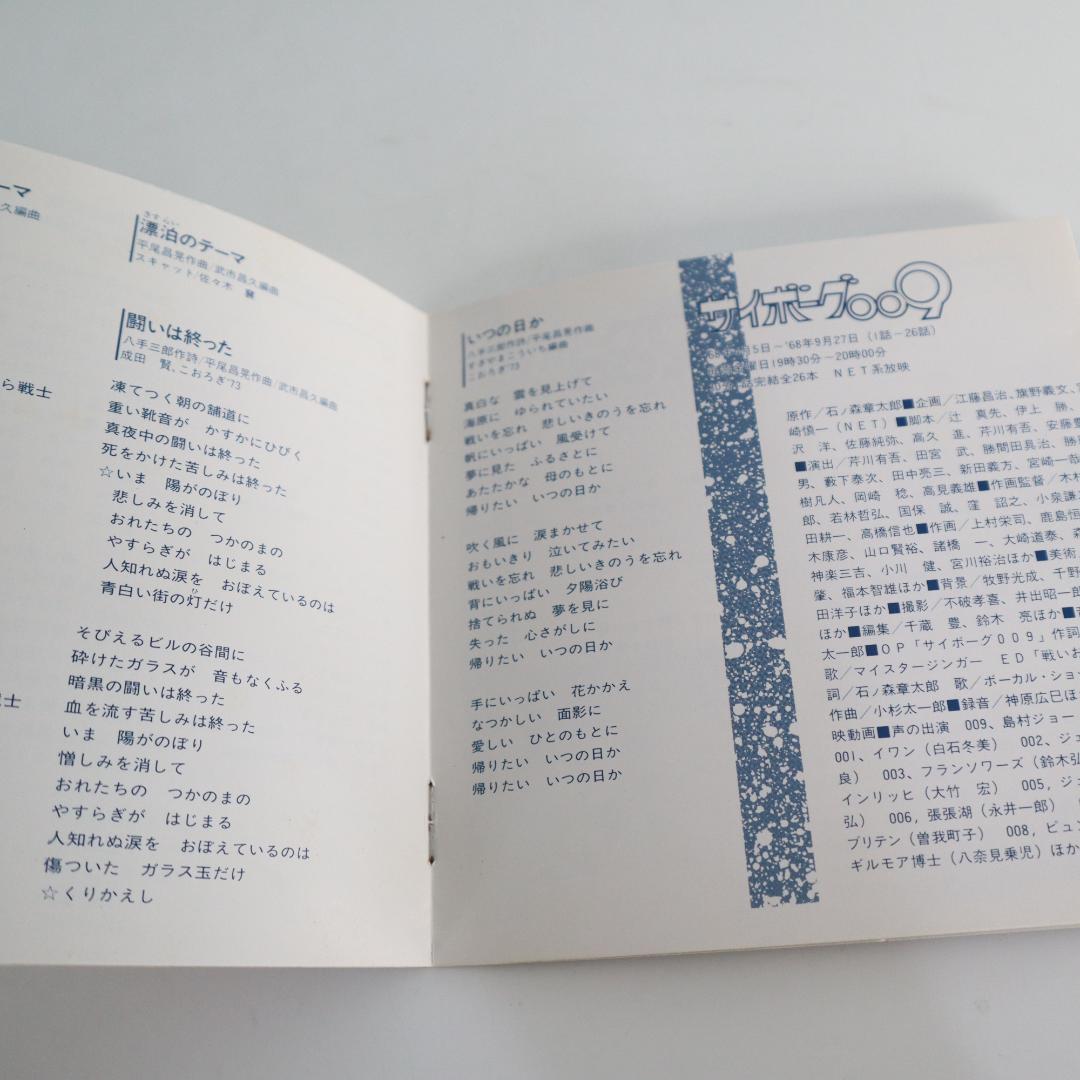 ーマ
久編曲
ら戦士
士
さすらい
漂泊のテーマ
平尾昌晃作曲/武市昌久編曲
スキャット/佐々木 賛
闘いは終った
八手三郎作詩/平尾昌晃作曲/武市昌久編曲
成田 賢、こおろぎ'73
凍てつく朝の舗道に
重い靴音が かすかにひびく
真夜中の闘いは終った
死をかけた苦しみは終った
☆いま 陽がのぼり
悲しみを消して
おれたちの つかのまの
やすらぎが はじまる
人知れぬ涙を おぼえているのは
青白い街の灯だけ
ひ
そびえるビルの谷間に
砕けたガラスが 音もなくふる
暗黒の闘いは終った
血を流す苦しみは終った
いま 陽がのぼり
憎しみを消して
おれたちの つかのまの
やすらぎが はじまる
人知れぬ涙を おぼえているのは
傷ついた ガラス玉だけ
☆くりかえし
いつの日か
八手三郎作詩/平尾昌晃作曲
すぎやまこういち編曲
こおろぎ'73
真白な 雲を見上げて
海原に ゆられていたい
戦いを忘れ 悲しいきのうを忘れ
帆にいっぱい 風受けて
夢に見た ふるさとに
あたたかな 母のもとに
帰りたい いつの日か
吹く風に 涙まかせて
おもいきり 泣いてみたい
戦いを忘れ 悲しいきのうを忘れ
背にいっぱい 夕陽浴び
捨てられぬ 夢を見に
失った 心さがしに
帰りたい いつの日か
手にいっぱい 花かかえ
なつかしい 面影に
愛しい ひとのもとに
帰りたい いつの日か
帰りたい いつの日か
サイボーグ009
月5日～'68年9月27日（1話－26話）
曜日19時30分～20時00分
話完結全26本 NET系放映
原作/石ノ森章太郎■企画/江藤昌治、旗野義文、
崎慎一（NET）■脚本/辻 真先、伊上 勝、
沢 洋、佐藤純弥、高久 進、芹川有吾、安藤
■演出/芹川有吾、田宮 武、勝間田具治、勝
男、藪下泰次、田中亮三、新田義方、宮崎一哉
樹凡人、岡崎 稔、高見義雄■作画監督/木村
郎、若林哲弘、国保 誠、窪 詔之、小泉謙
田耕一、高橋信也■作画/上村栄司、鹿島恒
木康彦、山口賢裕、諸橋 一、大崎道泰、森
神楽三吉、小川 健、宮川裕治ほか■美術
肇、福本智雄ほか■背景/牧野光成、千野
田洋子ほか■撮影/不破孝喜、井出昭一郎
ほか■編集/千蔵 豊、鈴木 亮ほか■
太一郎■OP「サイボーグ009」作詞
歌/マイスタージンガー ED「戦いお
詞/石ノ森章太郎 歌/ボーカル・ショッ
作曲/小杉太一郎■録音/神原広巳ほ
映動画■声の出演 009、島村ジョー
001、イワン（白石冬美） 002、ジェ
良） 003、フランソワーズ（鈴木弘
インリッヒ（大竹 宏） 005，ジェ
弘） 006，張張湖（永井一郎）
ブリテン（曽我町子） 008，ピュン
ギルモア博士（八奈見乗児）ほか